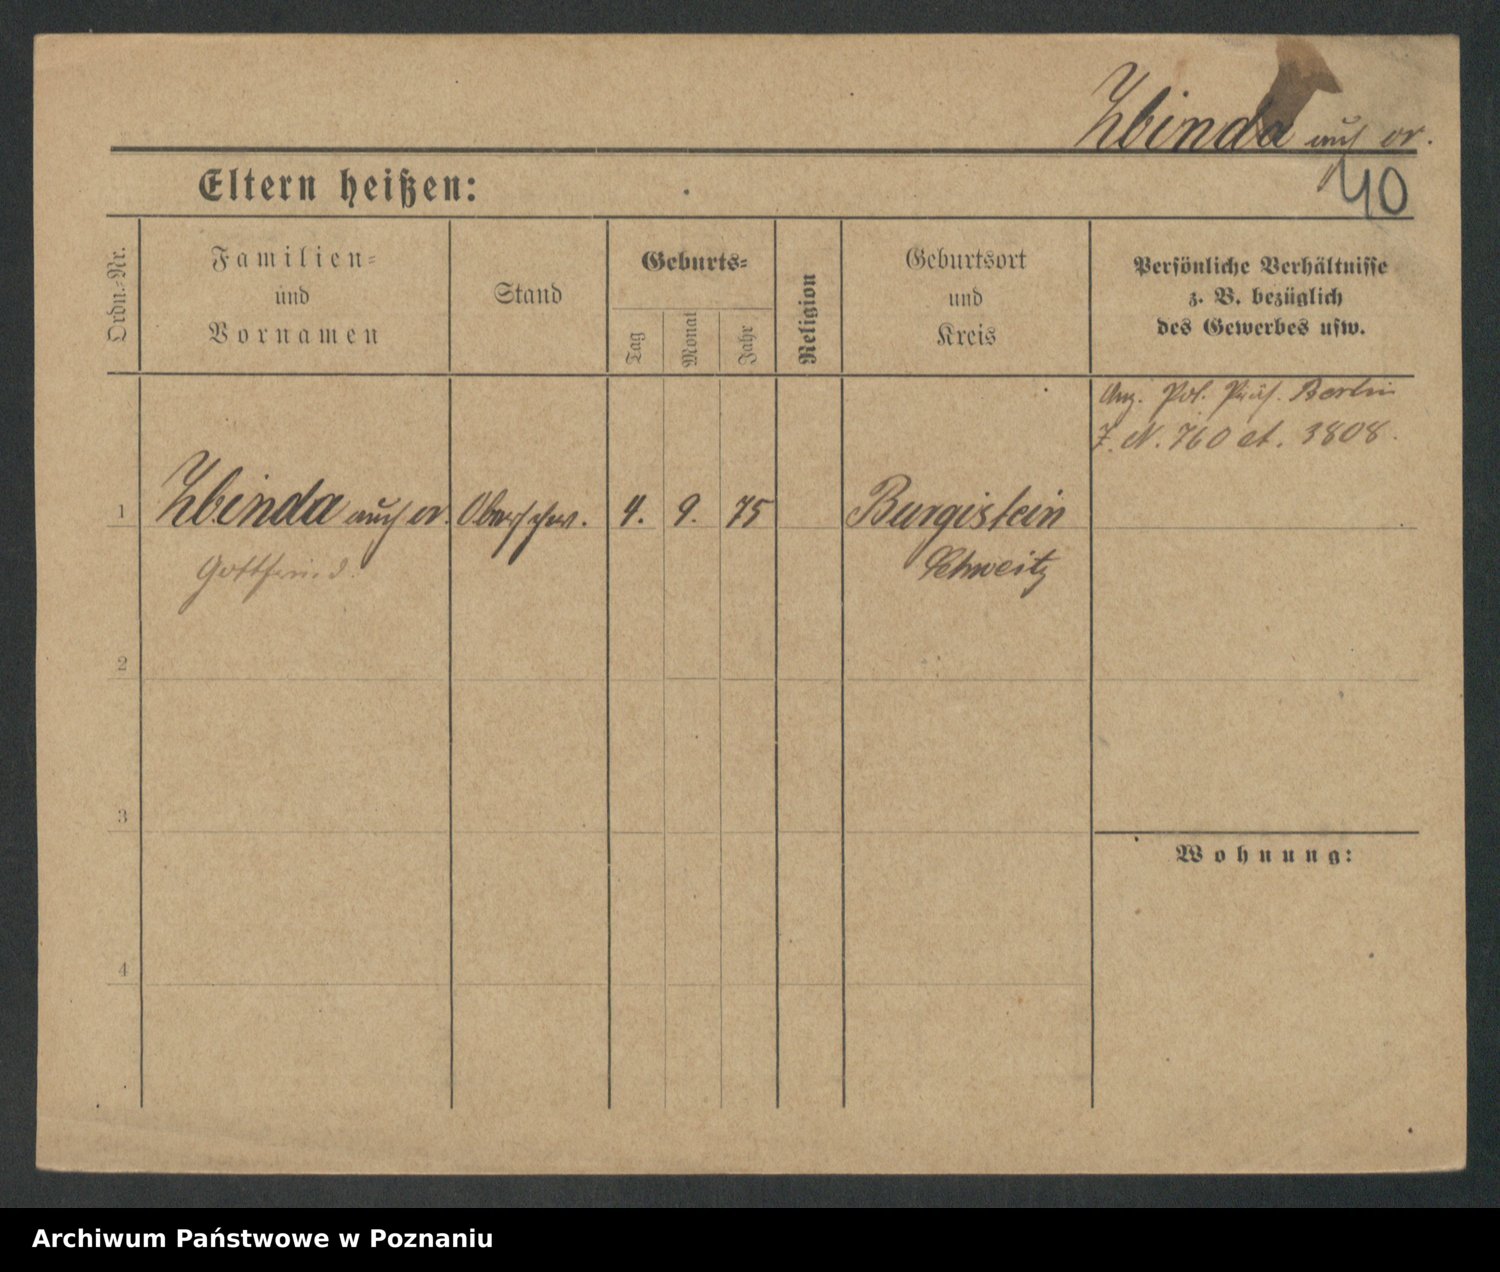 Zbinda auch er.
40
Eltern heißen:
Ordn.-Nr.
Familien-
und
Vornamen
Stand
Geburts-
Tag
Monat
Jahr
Religion
Geburtsort
und
Kreis
Persönliche Verhältnisse
z. B. bezüglich
des Gewerbes usw.
Pol. Präs. Berlin
J. N. 760 ct. 3808.
1
Zbinda auch er.
Oberschw.
4.
9.
75
Burgistein
Gottfried.
Schweitz
2
3
Wohnung:
4
Archiwum Państwowe w Poznaniu